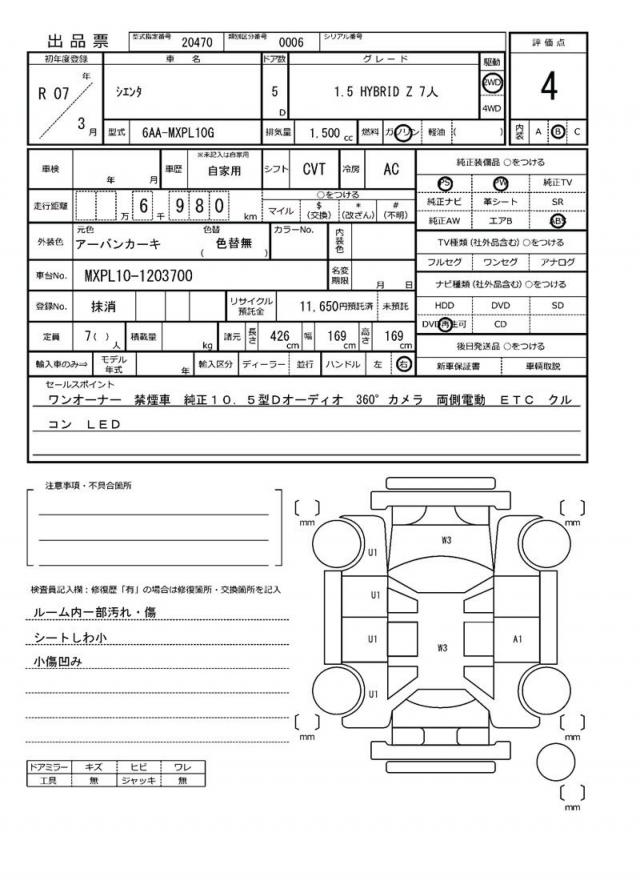 出品票 型式指定番号 20470 類別区分番号 0006 シリアル番号
評価点
4
初年度登録 車名 ドア数 グレード 駆動
R 07 年 3 月 シエンタ 5 D 1.5 HYBRID Z 7人 2WD
4WD
型式 6AA-MXPL10G 排気量 1,500 cc 燃料 ガソリン 軽油 ( )
内装 A B C
車検 年 月 車歴 ※未記入は自家用 自家用 シフト CVT 冷房 AC
純正装備品 ○をつける
PS PW 純正TV
走行距離 万 6 千 9 8 0 km
○をつける
マイル $(交換) *(改ざん) #(不明)
純正ナビ 革シート SR
純正AW エアB ABS
外装色 元色 アーバンカーキ 色替 ( 色替無 ) カラーNo. 内装色
TV種類(社外品含む)○をつける
フルセグ ワンセグ アナログ
車台No. MXPL10-1203700 名変期限 月 日
ナビ種類(社外品含む)○をつける
登録No. 抹消 リサイクル預託金 11,650円預託済 未預託
HDD DVD SD
DVD再生可 CD
定員 7( ) 人 積載量 kg 諸元 長さ 426 cm 幅 169 cm 高さ 169 cm
後日発送品 ○をつける
輸入車のみ⇒ モデル年式 年 輸入区分 ディーラー 並行 ハンドル 左 右
新車保証書 車輌取説
セールスポイント
ワンオーナー 禁煙車 純正10.5型Dオーディオ 360°カメラ 両側電動 ETC クル
コン LED
注意事項・不具合箇所
検査員記入欄:修復歴「有」の場合は修復箇所・交換箇所を記入
ルーム内一部汚れ・傷
シートしわ小
小傷凹み
ドアミラー キズ ヒビ ワレ
工具 無 ジャッキ 無
[ ] mm
[ ] mm
U1 W3
U1
U1 W3 A1
U1
[ ] mm
[ ] mm
[ ] mm